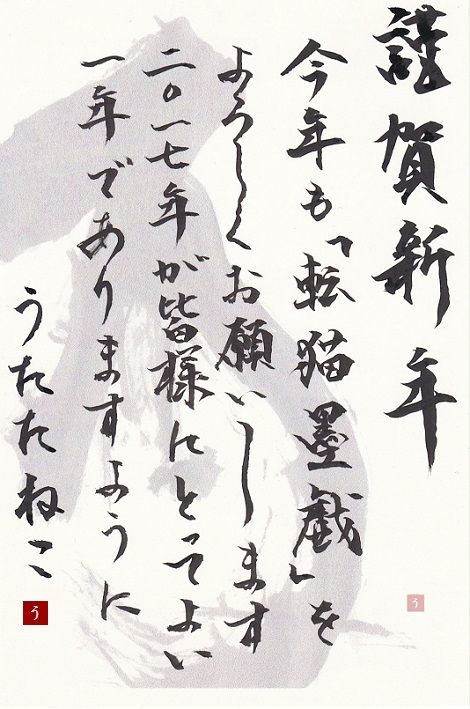 謹賀新年
今年も「転猫墨戯」を
よろしくお願いします
二〇一七年が皆様にとってよい
一年でありますように
うたたねこ
う
う